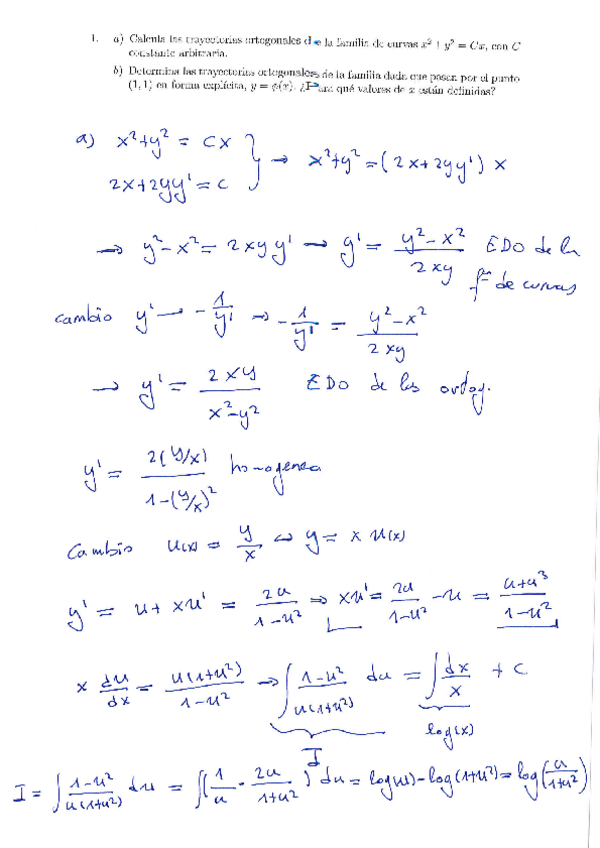 1. a) Calcula las trayectorias ortogonales de la familia de curvas x² + y² = Cx, con C
constante arbitraria.
b) Determina las trayectorias ortogonales de la familia dada que pasen por el punto
(1, 1) en forma explícita, y = φ(x). ¿Para qué valores de x están definidas?
a) x²+y² = Cx
2x+2yy' = C } → x²+y² = (2x+2yy') x
→ y²-x² = 2xy y' → y' = (y²-x²)/(2xy) EDO de la
fᵃ de curvas
cambio y' → -1/y' → -1/y' = (y²-x²)/(2xy)
→ y' = 2xy/(x²-y²) EDO de las ortog.
y' = 2(y/x)/(1-(y/x)²) homogenea
Cambio u(x) = y/x ⇔ y = x u(x)
y' = u + xu' = 2u/(1-u²) ⇒ xu' = 2u/(1-u²) - u = (u+u³)/(1-u²)
x du/dx = u(1+u²)/(1-u²) → ∫ (1-u²)/(u(1+u²)) du = ∫ dx/x + C
log(x)
I
I = ∫ (1-u²)/(u(1+u²)) du = ∫ (1/u - 2u/(1+u²)) du = log(u) - log(1+u²) = log(u/(1+u²))